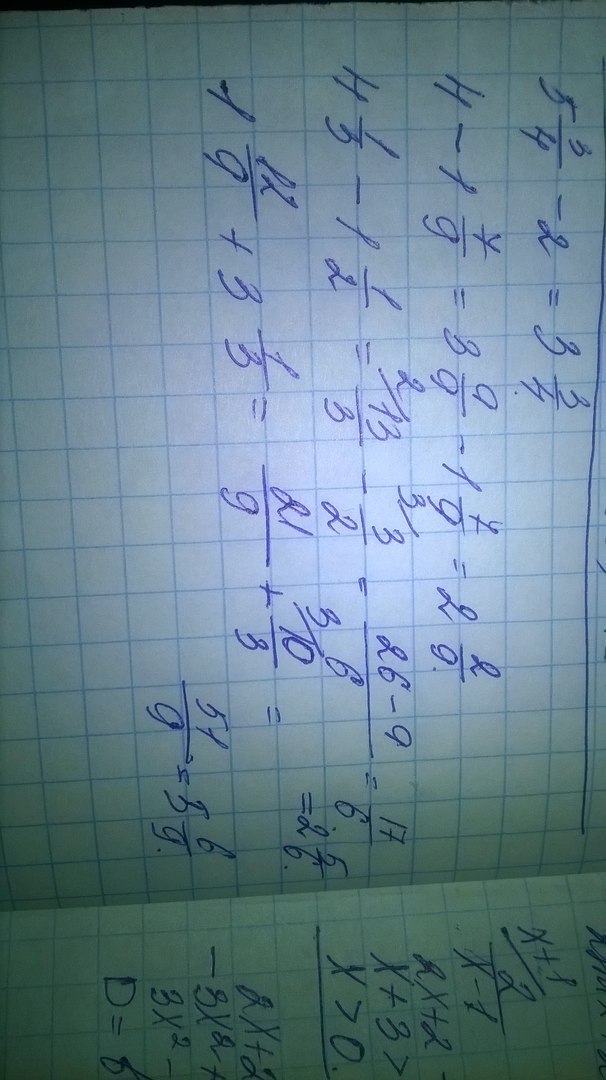 5 3/4 - 2 = 3 3/4.
4 - 1 7/9 = 3 9/9 - 1 7/9 = 2 2/9.
4 1/3 - 1 1/2 = 13/3 - 3/2 = (26 - 9)/6 = 17/6 = 2 5/6.
1 12/9 + 3 1/3 = 21/9 + 10/3 = 51/9 = 5 6/9.
x+1
2
x-1
2x+2
x+3>
x>0.
2x+2
-3x2+
3x²-
D=